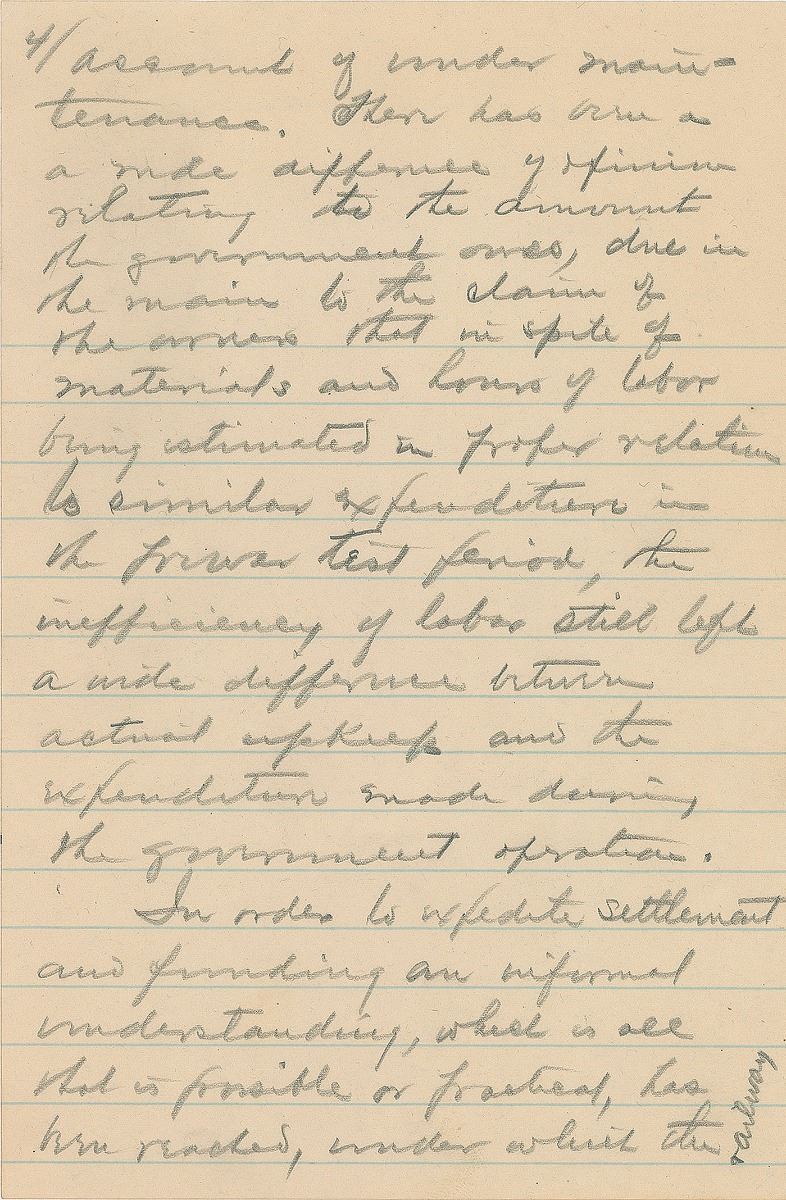 4/ account of under main-
tenance. There has been a
a wide difference of opinion
relating to the amount
the government owes, due in
the main to the claim of
the owners that in spite of
materials and hours of labor
being estimated in proper relation
to similar expenditures in
the prewar test period, the
inefficiency of labor still left
a wide difference between
actual upkeep and the
expenditure made during
the government operation.
In order to expedite settlement
and funding an informal
understanding, which is all
that is possible or practical, has
been reached, under which the
railway